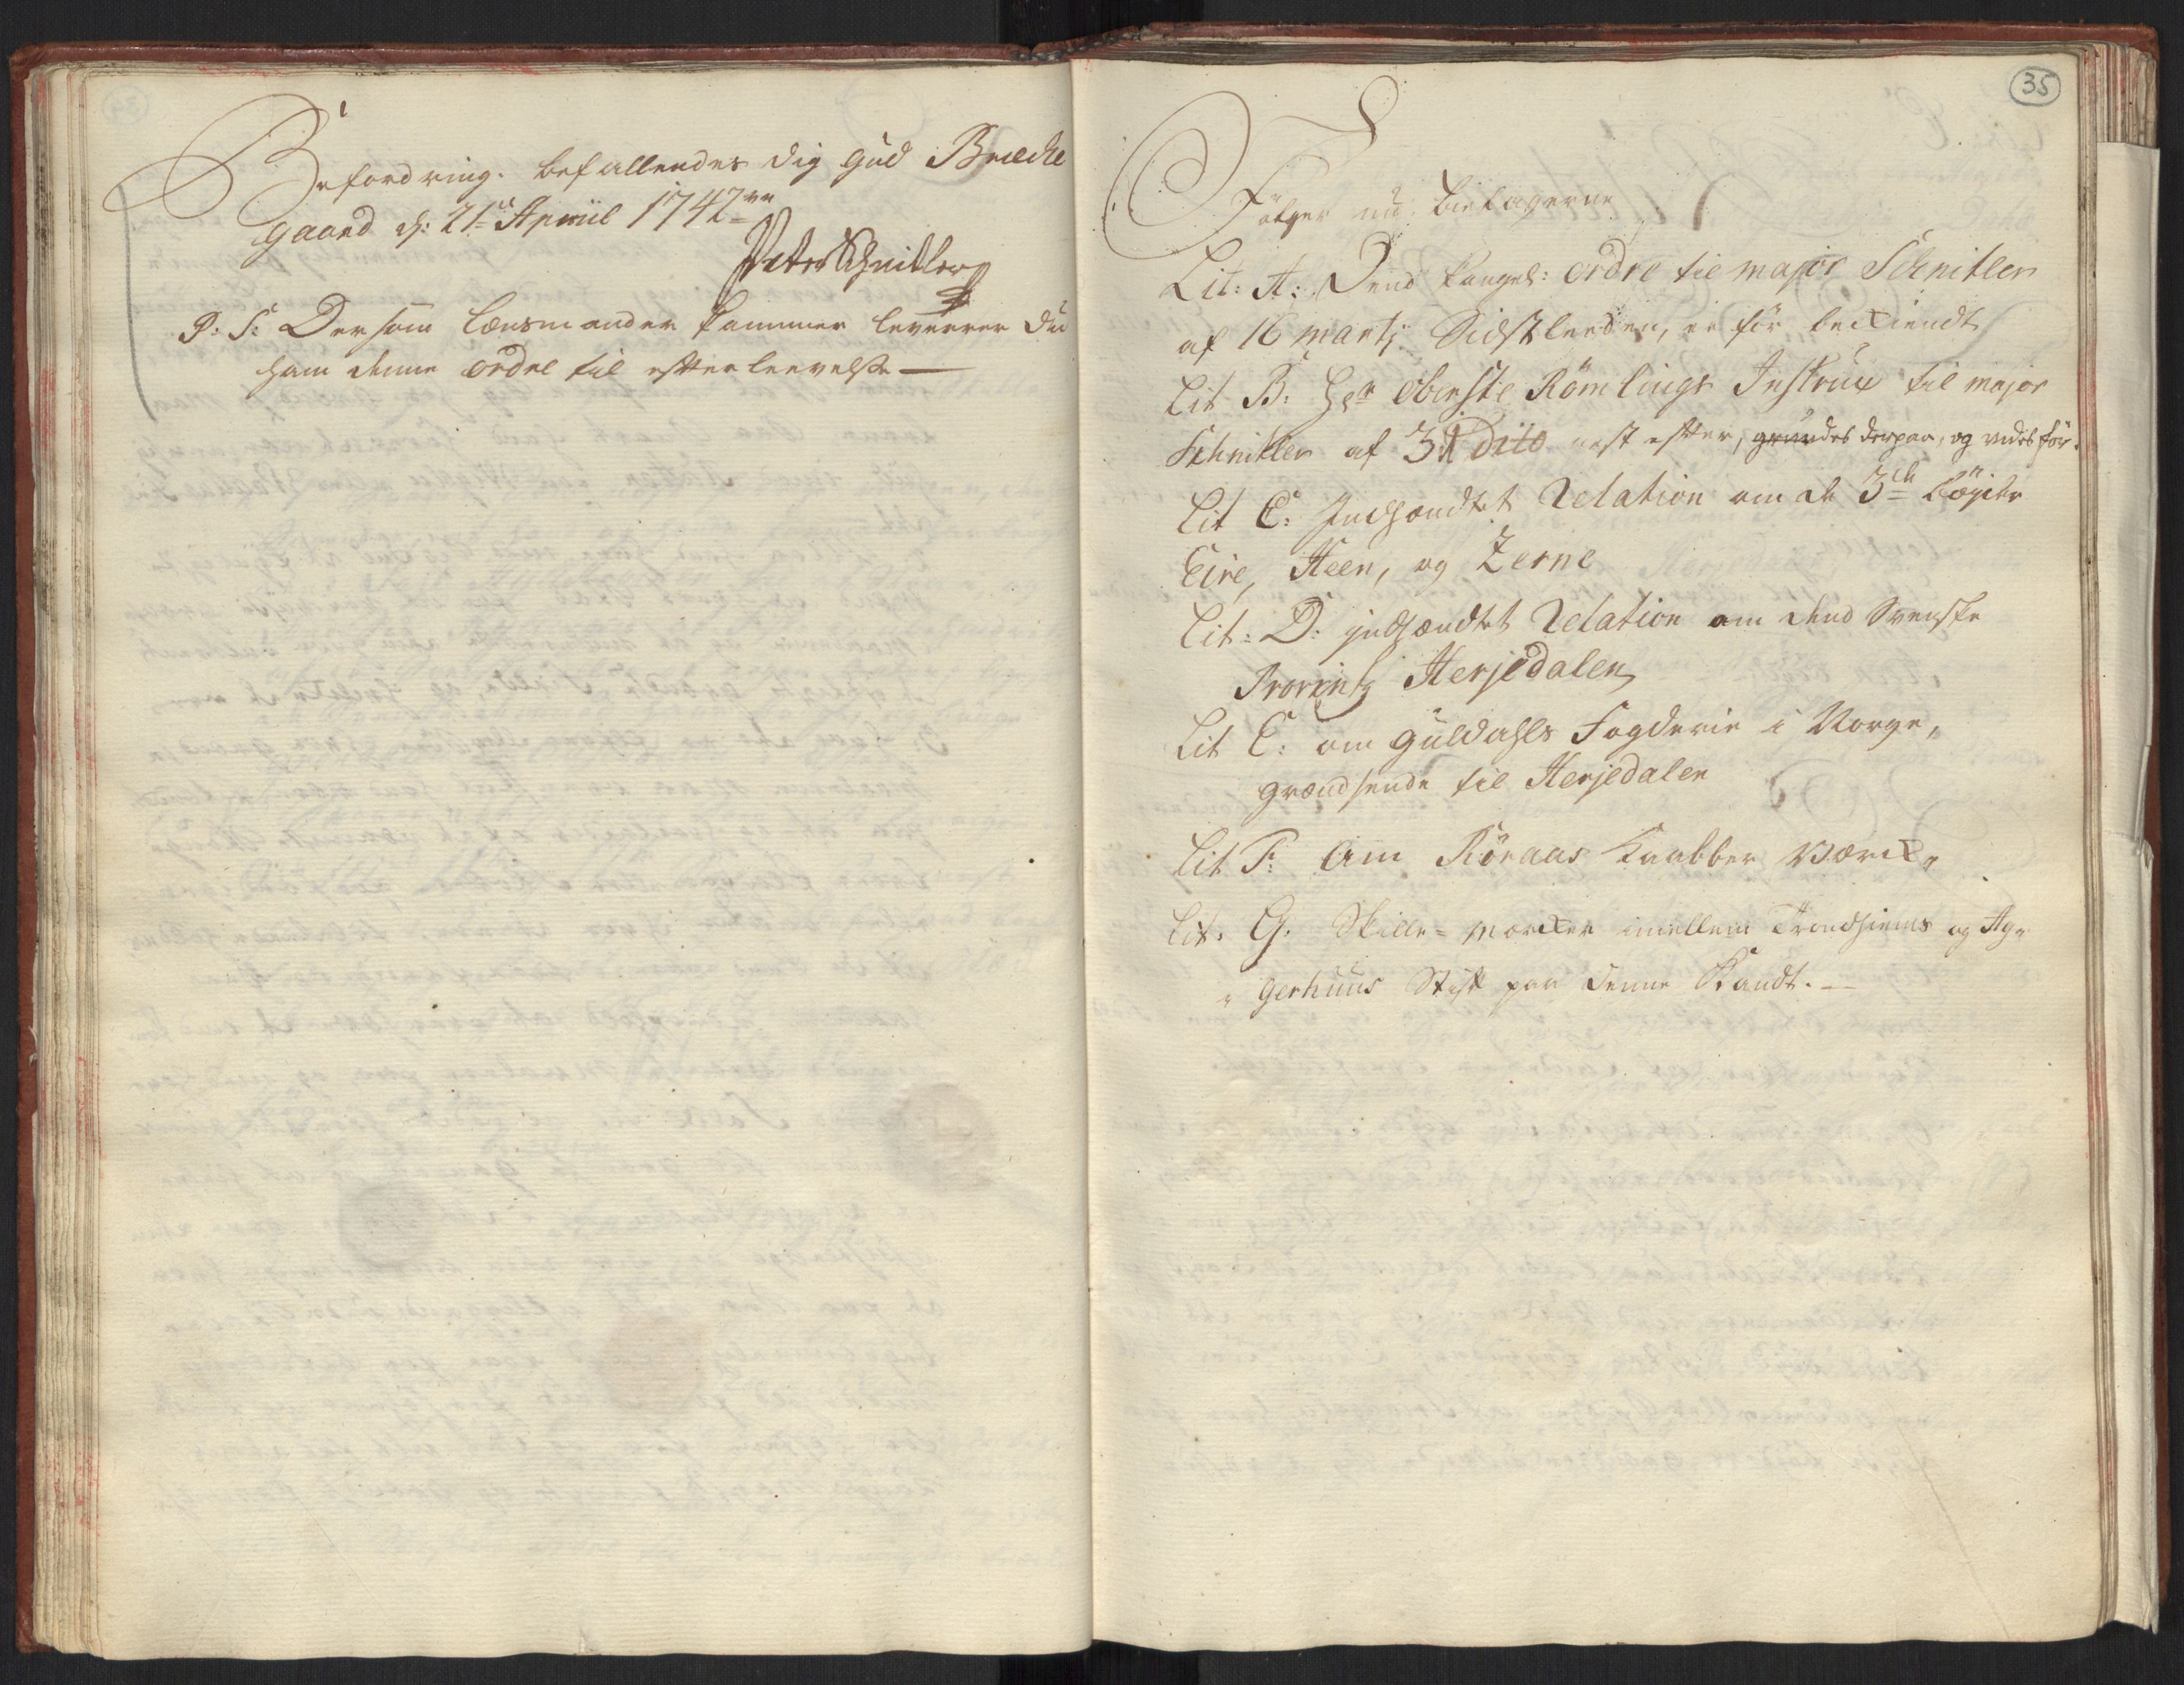 Befordring. befallendes dig Gud Brecke
gaard d: 21de Apriil 1742ve
Peter Schnitler
P: S: Dersom Lensmanden kommer leverer du
ham denne ordre til efterleevelse —
35
Fölger nu bielagerne
Lit: A: Dend Kongel: ordre til major Schnitler
af 16 martj Sidstleeden, er för beckiendt
Lit B: Hr Oberste Römlings Instrux til major
Schnitler af 31 dito nest efter, grundes derpaa, og vides för.
Lit C: Indhændtet Relation om de 3de bögder
Lire, Heen, og Zerne
Lit: D: jndhændtet Relation om dend Svenske
Provintz Herjedalen
Lit E: om Guldahls Fogderie i Norge,
grændsende til Herjedalen
Lit F: Om Röraas Kaabber Værck,
Lit. G. Skille = mercker imellem Trondhiems og Ag„
„gerhuus Stift paa denne Kandt. —